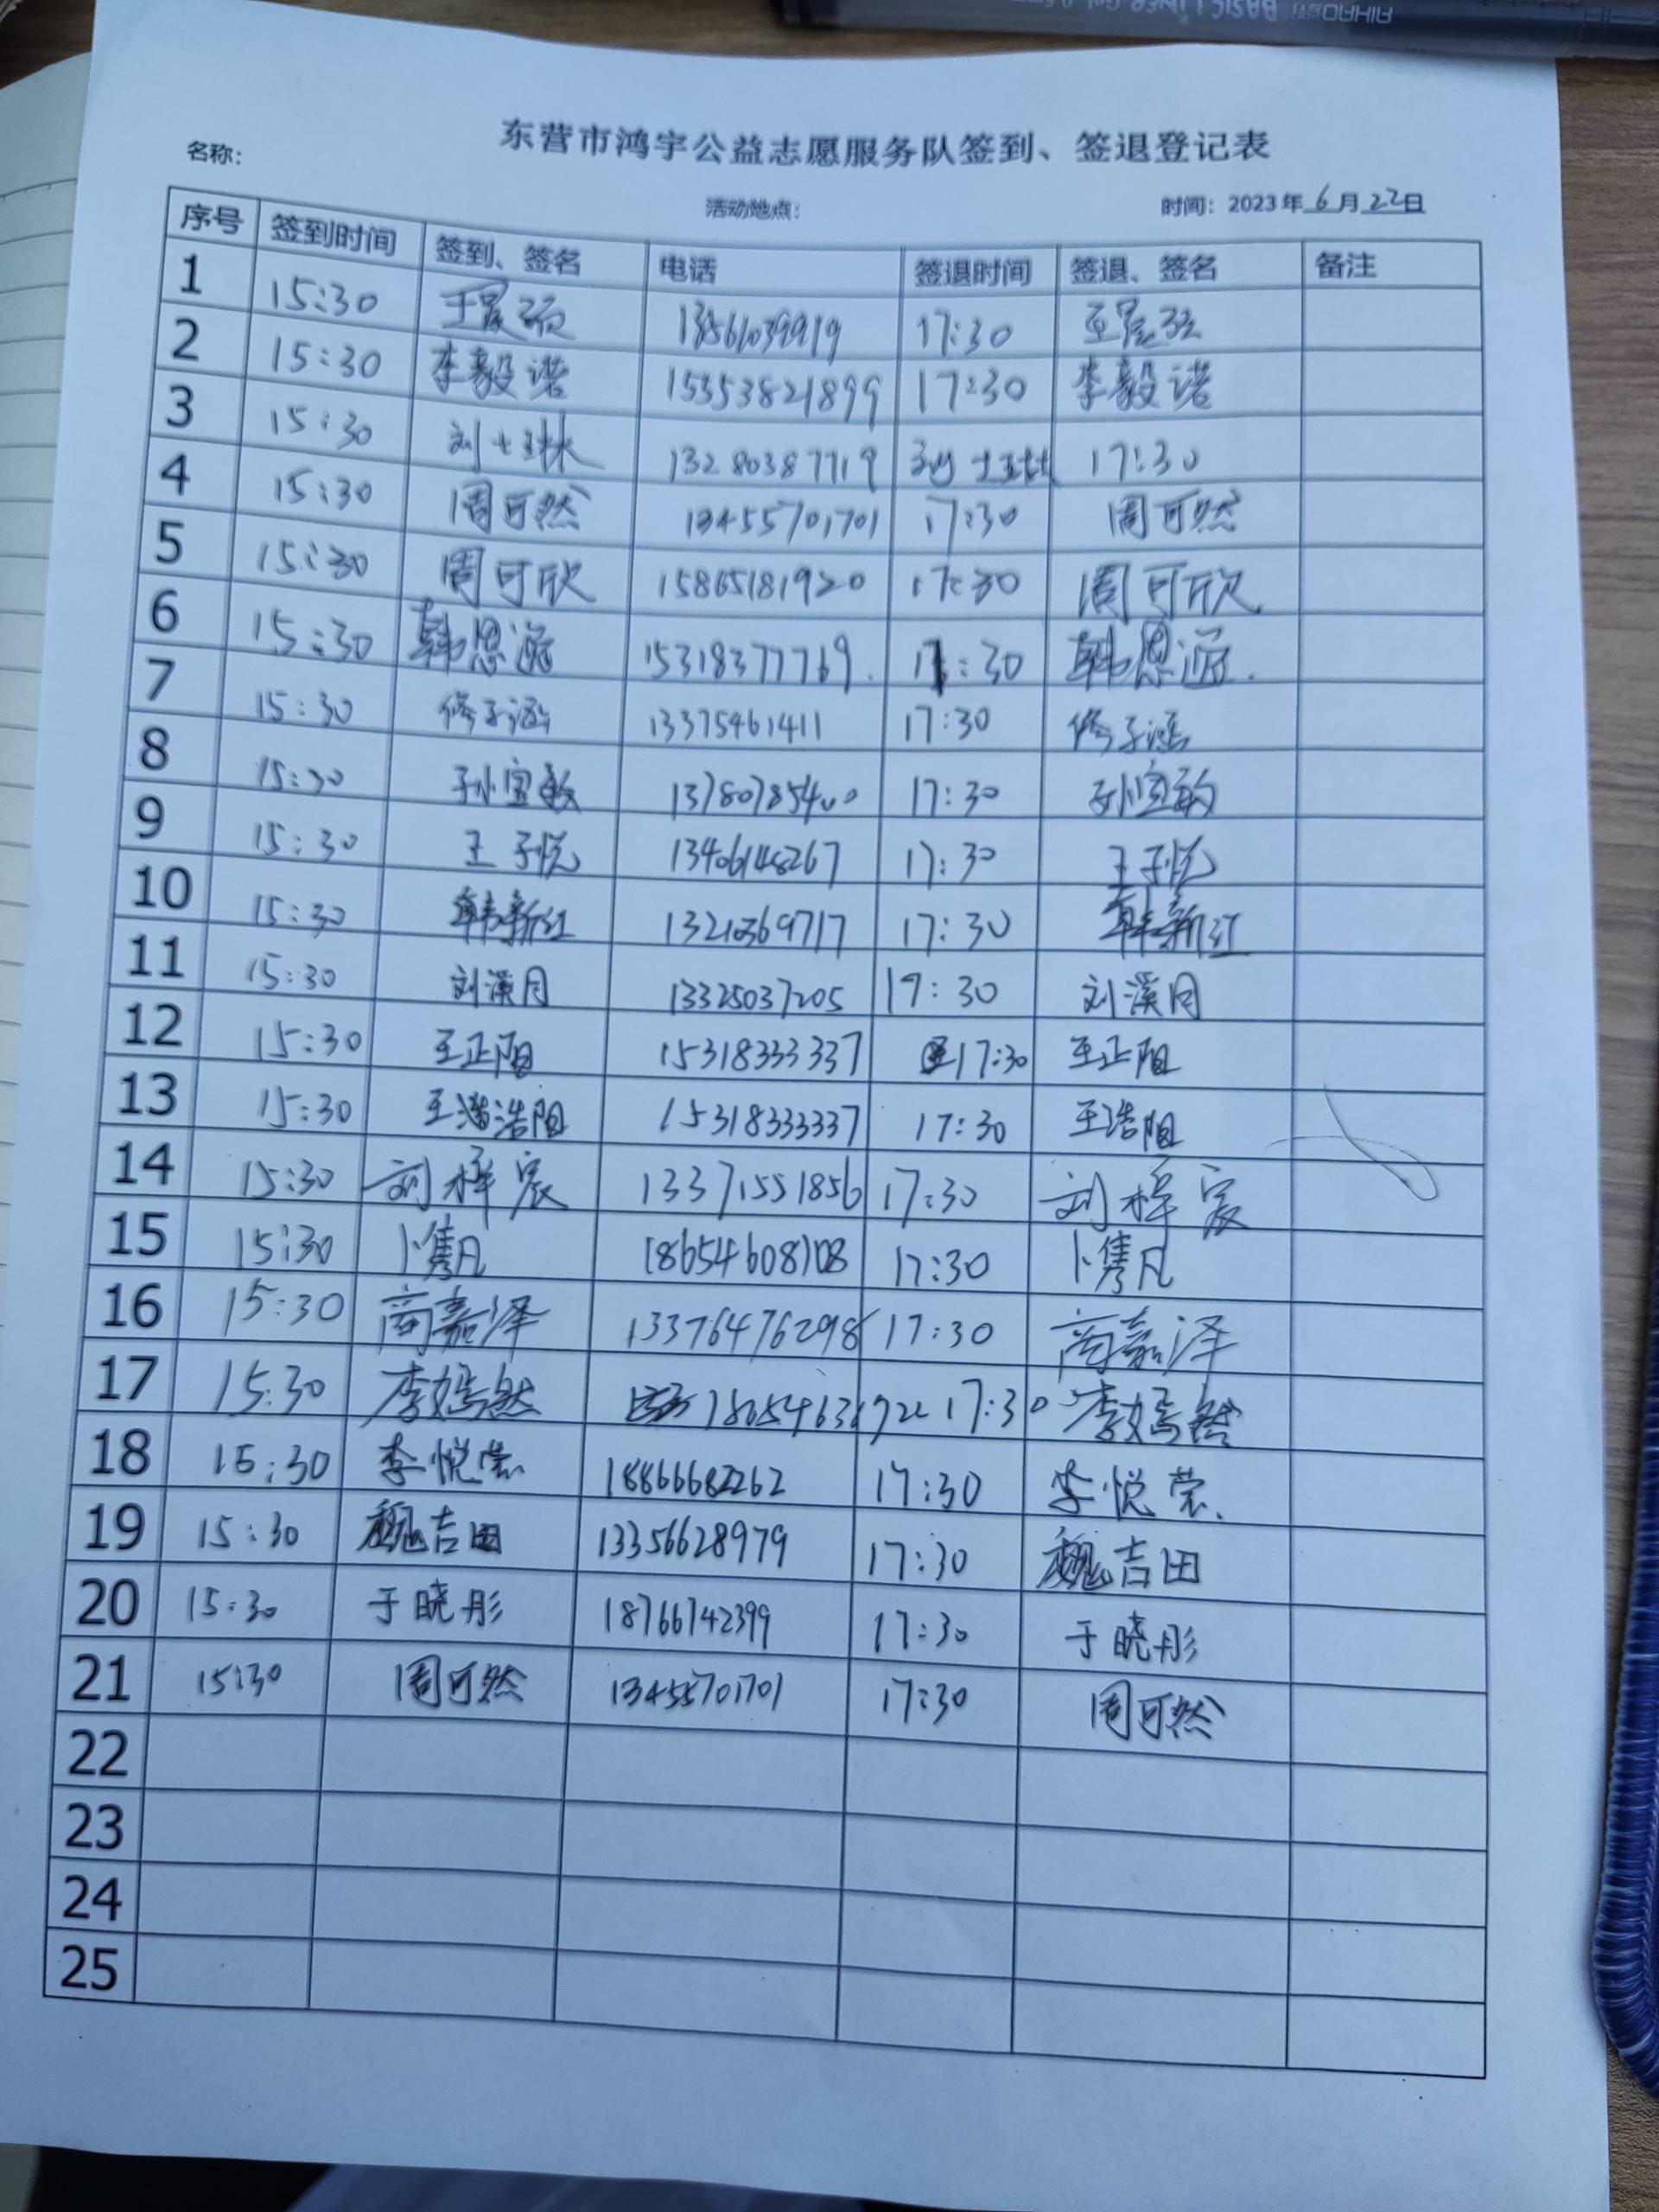 东营市鸿宇公益志愿服务队签到、签退登记表
名称：
活动地点：
时间：2023年6月22日
序号 签到时间 签到、签名 电话 签退时间 签退、签名 备注
1 15:30 17:30
2 15:30 李毅诺 15353821899 17:30 李毅诺
3 15:30 刘士琳 13280387719 刘士琳 17:30
4 15:30 周可然 13455701701 17:30 周可然
5 15:30 周可欣 15865181920 17:30 周可欣
6 15:30 韩思涵 15318377769 17:30 韩思涵
7 15:30 修子涵 13375461411 17:30 修子涵
8 15:30 孙宜敏 13780785400 17:30 孙宜敏
9 15:30 王子悦 13406148267 17:30 王子悦
10 15:30 韩新红 13210369717 17:30 韩新红
11 15:30 刘溪月 13325037205 17:30 刘溪月
12 15:30 王正阳 15318333337 17:30 王正阳
13 15:30 王浩阳 15318333337 17:30 王浩阳
14 15:30 刘梓宸 13371551856 17:30 刘梓宸
15 15:30 卜隽凡 18654608108 17:30 卜隽凡
16 15:30 商嘉泽 13376476298 17:30 商嘉泽
17 15:30 李嫣然 17:30 李嫣然
18 15:30 李悦荣 18866682262 17:30 李悦荣
19 15:30 魏吉田 13356628979 17:30 魏吉田
20 15:30 于晓彤 18766742399 17:30 于晓彤
21 15:30 周可然 13455701701 17:30 周可然
22
23
24
25